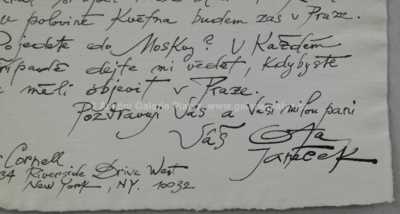 v polovině Května budem zas v Praze.
Pojedete do Moskvy? V Každém
případě dejte mi vědět, kdybyste
měli objevit v Praze.
Pozdravuji Vás a Vaši milou paní
Váš Ota
Janeček
Cornell
34 Riverside Drive West
New York, NY. 10032